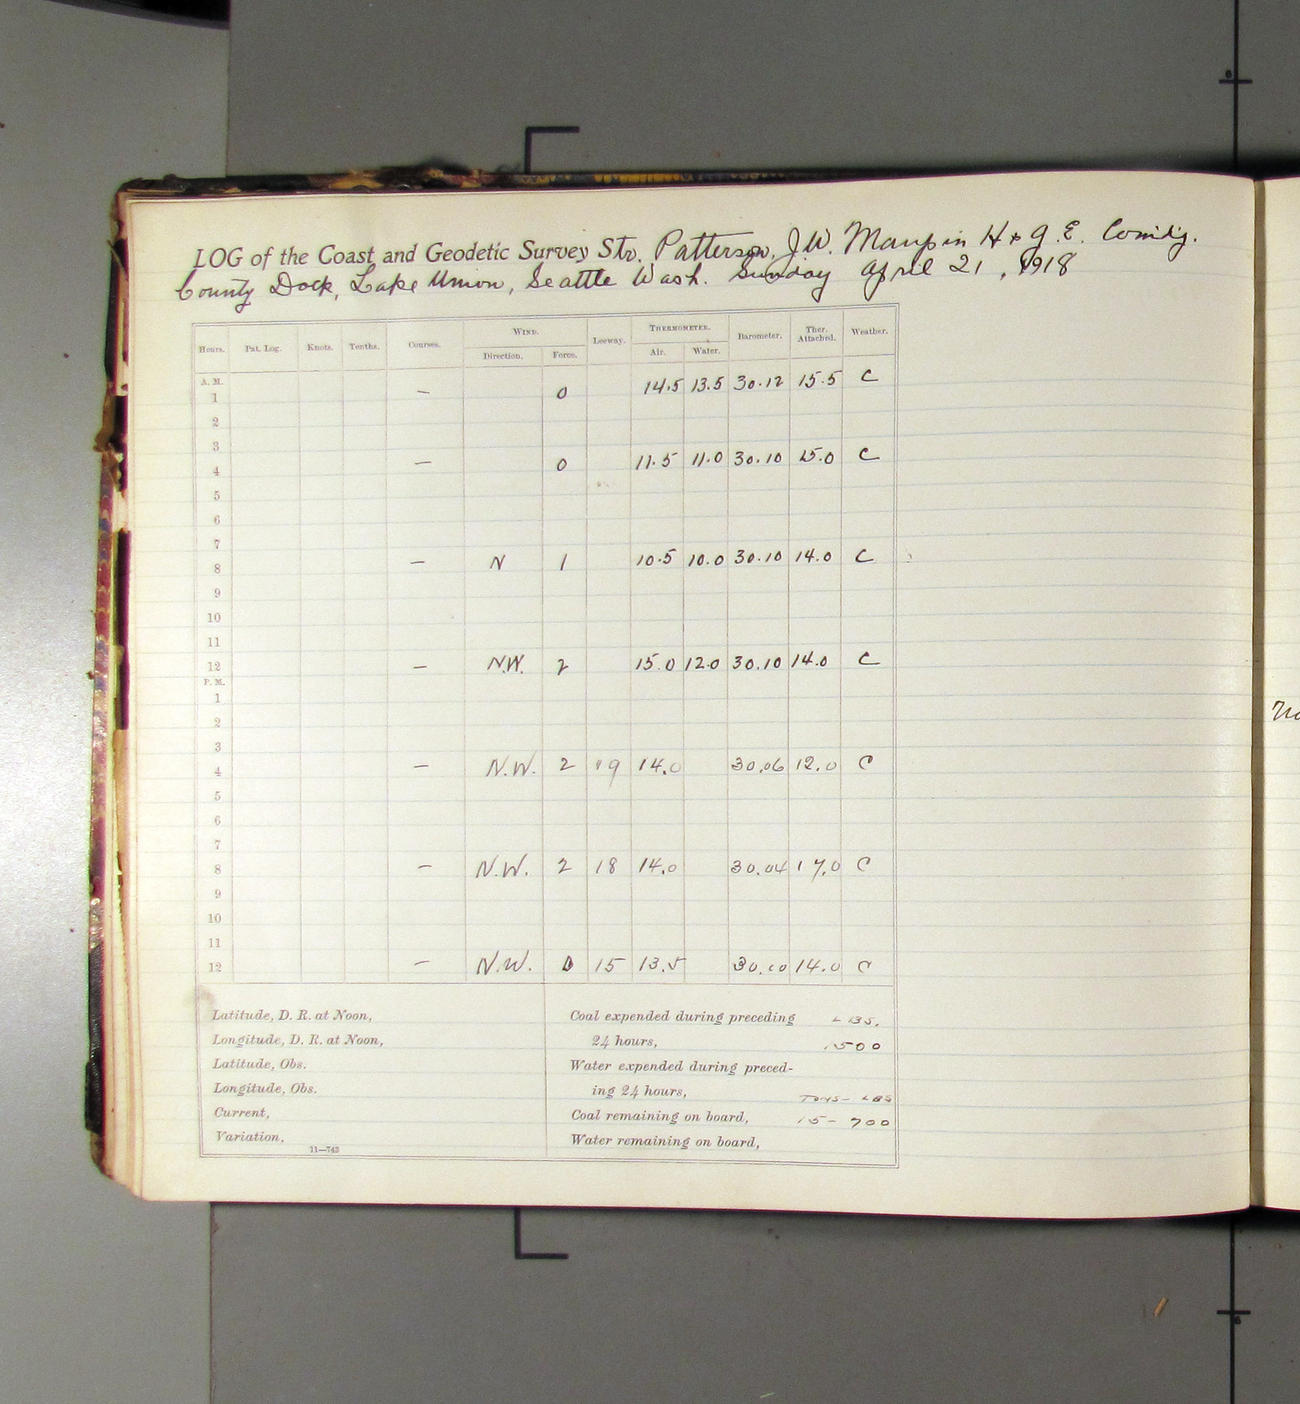 LOG of the Coast and Geodetic Survey Str. Patterson, J.W. Maupin H & G. E. Comdg.
County Dock, Lake Union, Seattle Wash. Sunday April 21, 1918
Hours. Pat. Log. Knots. Tenths. Courses. WIND. Leeway. THERMOMETER. Barometer. Ther. Attached. Weather.
Direction. Force. Air. Water.
A. M.
1 — 0 14.5 13.5 30.12 15.5 C
2
3
4 — 0 11.5 11.0 30.10 15.0 C
5
6
7
8 — N 1 10.5 10.0 30.10 14.0 C
9
10
11
12 — N.W. 2 15.0 12.0 30.10 14.0 C
P. M.
1
2
3
4 — N.W. 2 19 14.0 30.06 12.0 C
5
6
7
8 — N.W. 2 18 14.0 30.04 17.0 C
9
10
11
12 — N.W. 0 15 13.5 14.0 C
Latitude, D. R. at Noon,
Longitude, D. R. at Noon,
Latitude, Obs.
Longitude, Obs.
Current,
Variation,
11—743
Coal expended during preceding LBS.
24 hours, 1500
Water expended during preced-
ing 24 hours, TONS- LBS
Coal remaining on board, 15 - 700
Water remaining on board,